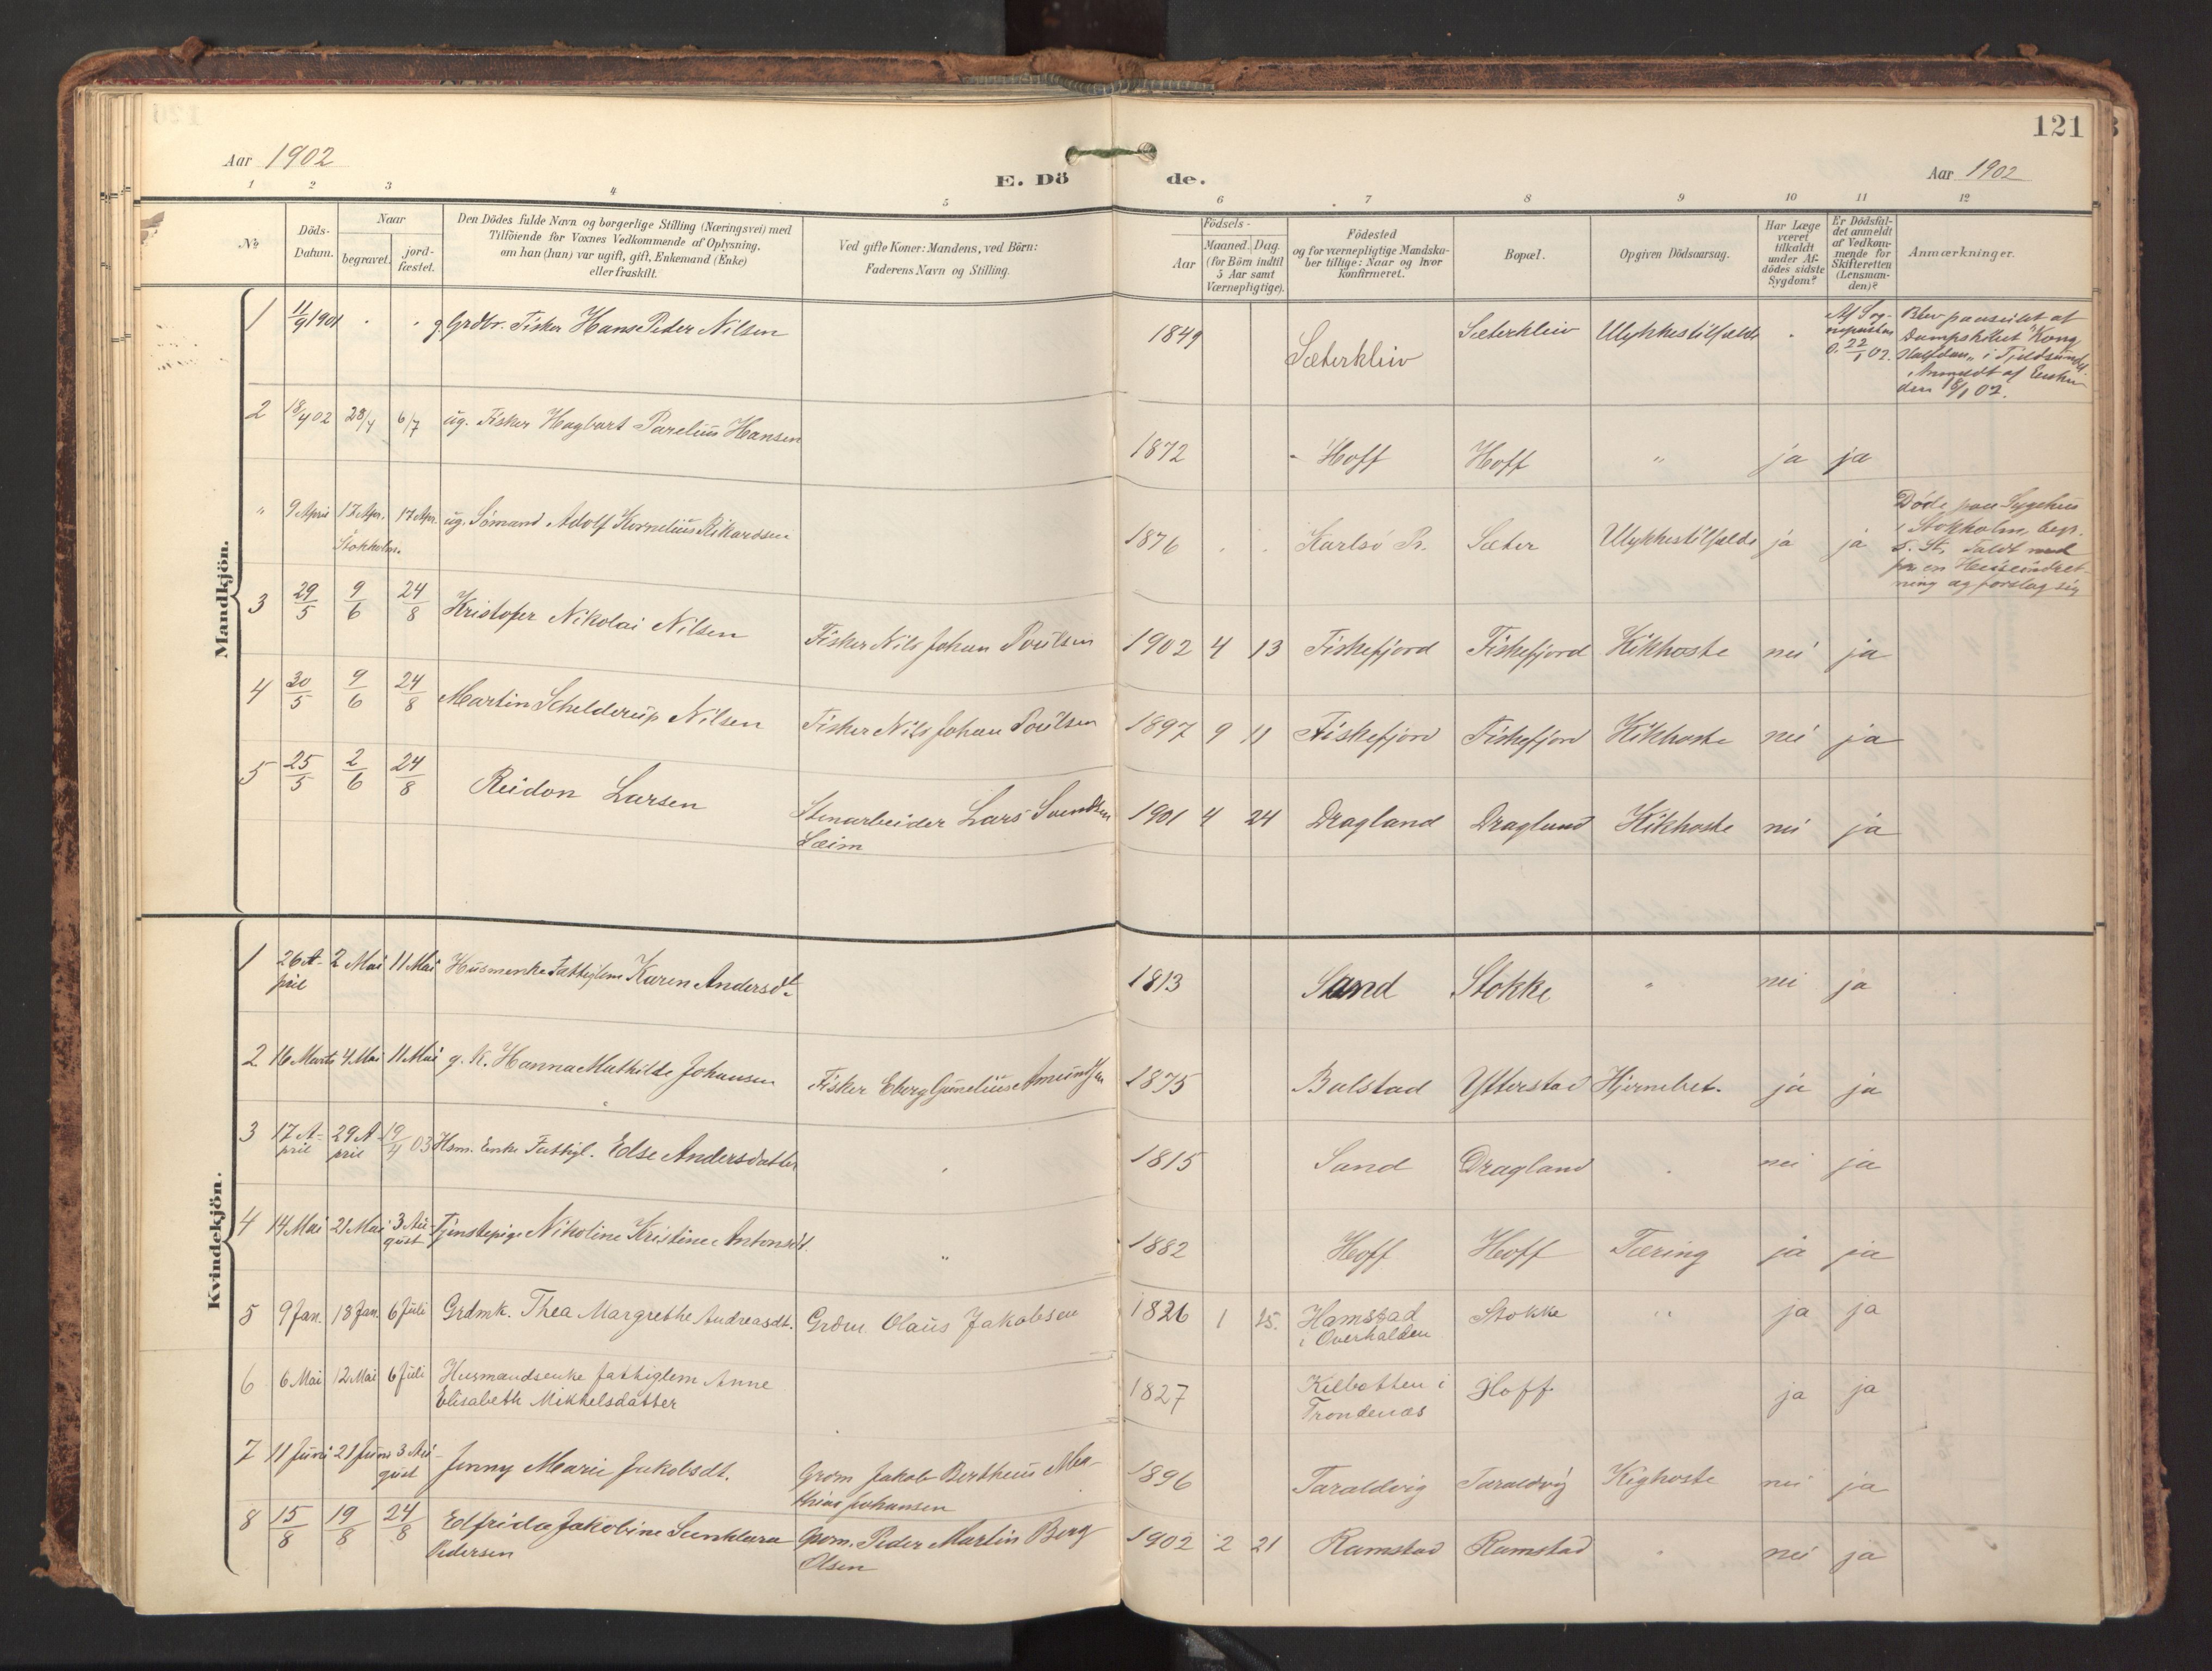 121
Aar 1902
E. Dö
de.
Aar 1902
1 2 3 4 5 6 7 8 9 10 11 12
No
Döds-
Datum.
Naar
begravet.
jord-
fæstet.
Den Dödes fulde Navn og borgerlige Stilling (Næringsvei) med
Tilföiende for Voxnes Vedkommende af Oplysning,
om han (hun) var ugift, gift, Enkemand (Enke)
eller fraskilt.
Ved gifte Koner: Mandens, ved Börn:
Faderens Navn og Stilling.
Födsels-
Aar
Maaned. Dag.
(for Börn indtil
5 Aar samt
Værnepligtige).
Födested
og for værnepligtige Mandska-
ber tillige: Naar og hvor
konfirmeret.
Bopæl.
Opgiven Dödsaarsag.
Har Læge
været
tilkaldt
under Af-
dödes sidste
Sygdom?
Er Dödsfal-
det anmeldt
af Vedkom-
mende for
Skifteretten
(Lensman-
den)?
Anmærkninger.
Mandkjön.
1 11/9 1901 g. Grdbr. Fisker Hans Peder Nilsen 1849 Sæterkleiv Sæterkleiv Ulykkestilfælde
22/1 02.
Blev paaseilet af
Dampskibet "Kong
Halfdan" i Tjeldsundet.
Anmeldt af Enken
den 18/1 02.
2 18/4 02 28/4 6/7 ug. Fisker Hagbart Parelius Hansen 1872 Hoff Hoff " ja ja
" 9 April 17 Apr. 17 Apr. ug. Sömand Adolf Kornelius Rikardsen 1876 Karlsö Pr. Sæter Ulykkestilfælde ja ja
Stokholm.
Döde paa Sygehus
i Stokholm, begr.
s. St. Faldt ned
fra en Heiseindret-
ning og forslog sig
3 29/5 9/6 24/8 Kristofer Nikolai Nilsen Fisker Nils Johan Poulsen 1902 4 13 Fiskefjord Fiskefjord Kikhoste nei ja
4 30/5 9/6 24/8 Martin Schelderup Nilsen Fisker Nils Johan Poulsen 1897 9 11 Fiskefjord Fiskefjord Kikhoste nei ja
5 25/5 2/6 24/8 Reidon Larsen Stenarbeider Lars Svendsen 1901 4 24 Dragland Dragland Kikhoste nei ja
Seim
Kvindekjön.
1 26 A- 2 Mai 11 Mai Husmenke Fattiglem Karen Andersdt. 1813 Sand Stokke " nei ja
pril
2 16 Marts 4 Mai 11 Mai g. K. Hanna Mathilde Johansen Fisker Eberg Gunelius Amundsen 1875 Balstad Ytterstad Hjernebet. ja ja
3 17 A- 29 A 19/4 03 Hsm. Enke Fattigl. Else Andersdatter " 1815 Sand Dragland nei ja
pril pril
4 14 Mai 21 Mai 3 Au- Tjenstepige Nikoline Kristine Antonsdt. " 1882 Hoff Hoff Tæring ja ja
gust
5 9 Jan. 18 Jan. 6 Juli Grdmk. Thea Margrethe Andreasdt. Grdm. Olaus Jakobsen 1826 1 25. Hamstad Stokke " ja ja
i Overhalden
6 6 Mai 12 Mai 6 Juli Husmandsenke fattiglem Anne 1827 Kilbotten i Hoff ja ja
Elisabeth Mikkelsdatter Trondenæs
7 11 Juni 21 Juni 3 Au- Jenny Marie Jakobsdt. Grdm Jakob Bertheus Ma- 1896 Taraldvig Taraldvig Kighoste nei ja
gust thias Johansen
8 15/8 19/8 24/8 Elfrida Jakobine Sunklara Grdm. Peder Martin Berg 1902 2 21 Ramstad Ramstad " nei ja
Pedersen Olsen